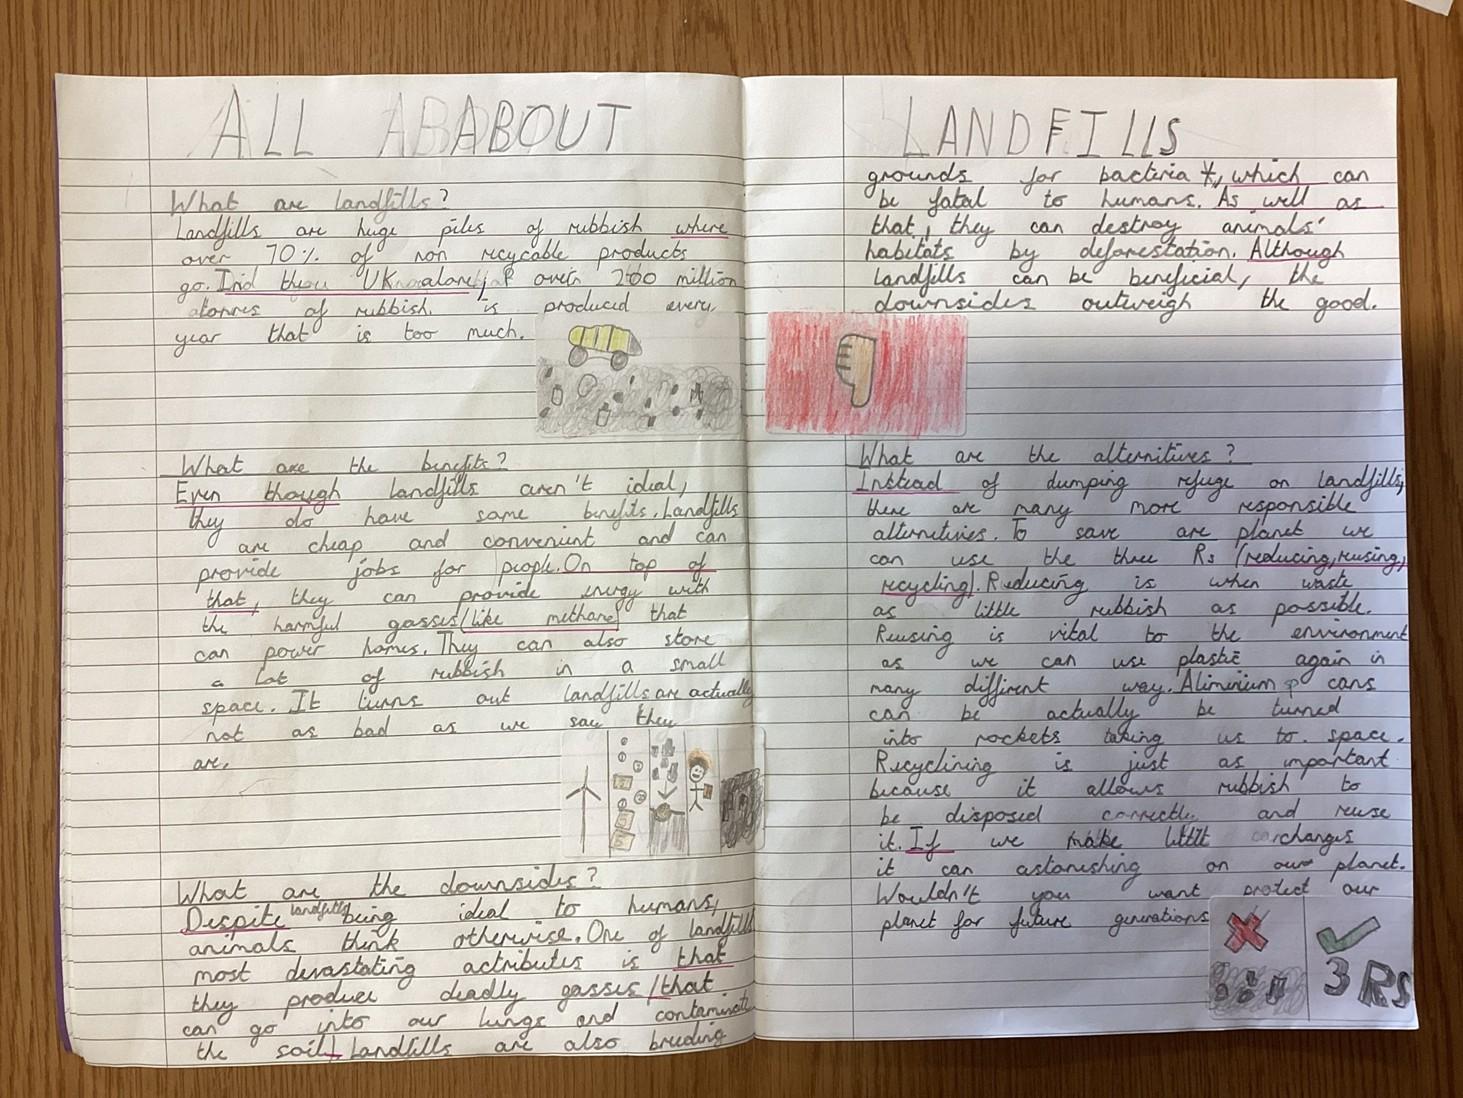 ALL ABOUT LANDFILLS
What are landfills?
Landfills are huge piles of rubbish where
over 70% of non recycable products
go. In the UK alone, over 200 million
tonnes of rubbish is produced every
year that is too much.
What are the benefits?
Even though landfills aren't ideal,
they do have some benefits. Landfills
are cheap and convenient and can
provide jobs for people. On top of
that, they can provide energy with
the harmful gasses (like methane) that
can power homes. They can also store
a lot of rubbish in a small
space. It turns out landfills are actually
not as bad as we say they
are.
What are the downsides?
Despite landfills being ideal to humans,
animals think otherwise. One of landfills
most devastating actributes is that
they produce deadly gasses (that
can go into our lungs and contaminate
the soil). Landfills are also breeding
grounds for bacteria, which can
be fatal to humans. As well as
that, they can destroy animals'
habitats by deforestation. Although
landfills can be beneficial, the
downsides outweigh the good.
What are the alternitives?
Instead of dumping refuge on landfills,
there are many more responsible
alternitives. To save are planet we
can use the three Rs (reducing, reusing,
recycling). Reducing is when waste
as little rubbish as possible.
Reusing is vital to the environment
as we can use plastic again in
many different way. Aliminium cans
can be actually be turned
into rockets taking us to space.
Recyclining is just as important
because it allows rubbish to
be disposed correctly and reuse
it. If we make little changes
it can astonishing on our planet.
Wouldn't you want protect our
planet for future generations
3 Rs